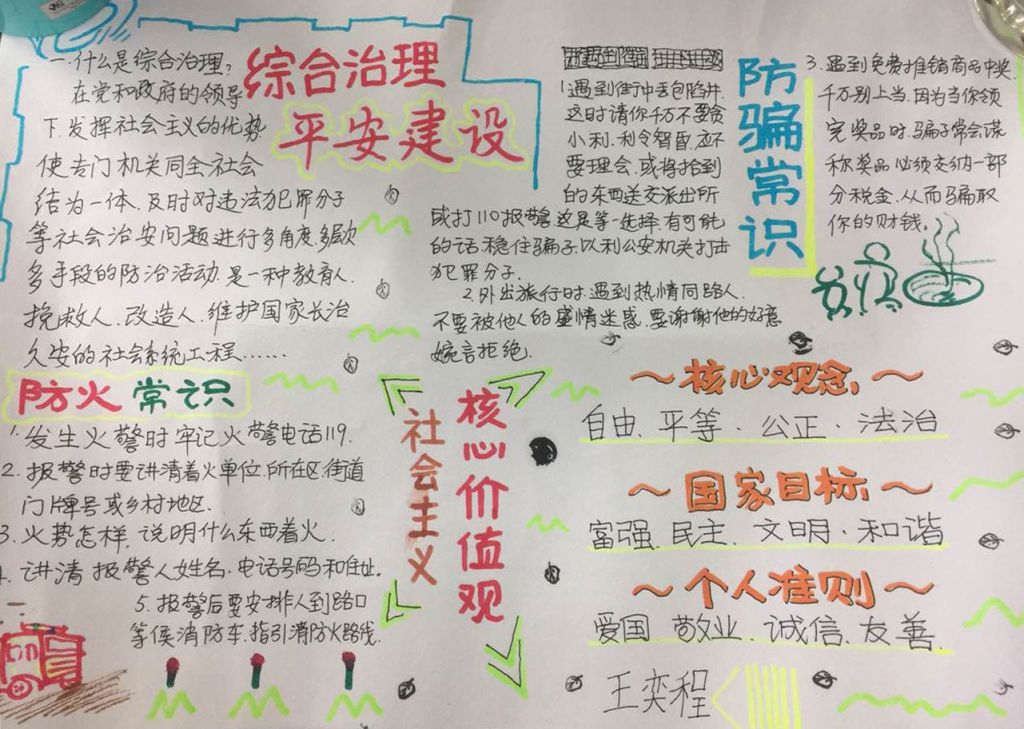 综合治理
平安建设
一.什么是综合治理?
在党和政府的领导
下.发挥社会主义的优势
使专门机关同全社会
结为一体.及时对违法犯罪分子
等社会治安问题进行多角度.多层次
多手段的防治活动.是一种教育人.
挽救人.改造人.维护国家长治
久安的社会系统工程......
防骗常识
1.遇到街中丢包陷井.
这时请你千万不要贪
小利.利令智昏.应不
要理会.或将拾到
的东西送交派出所
或打110报警.这是等一选择.有可能
的话稳住骗子.以利公安机关打击
犯罪分子.
2.外出旅行时.遇到热情同路人.
不要被他人的盛情迷惑.要谢谢他的好意
婉言拒绝.
3.遇到免费推销商品中奖.
千万别上当.因为当你领
完奖品时.骗子常会谎
称奖品必须交纳一部
分税金.从而骗取
你的财钱.
防火常识
1.发生火警时牢记火警电话119.
2.报警时要讲清着火单位.所在区.街道
门牌号或乡村地区.
3.火势怎样.说明什么东西着火.
4.讲清报警人姓名.电话号码和住址.
5.报警后要安排人到路口
等候消防车.指引消防火路线.
社会主义
核心价值观
~核心观念~
自由.平等.公正.法治
~国家目标~
富强.民主.文明.和谐
~个人准则~
爱国 敬业.诚信.友善.
王奕程